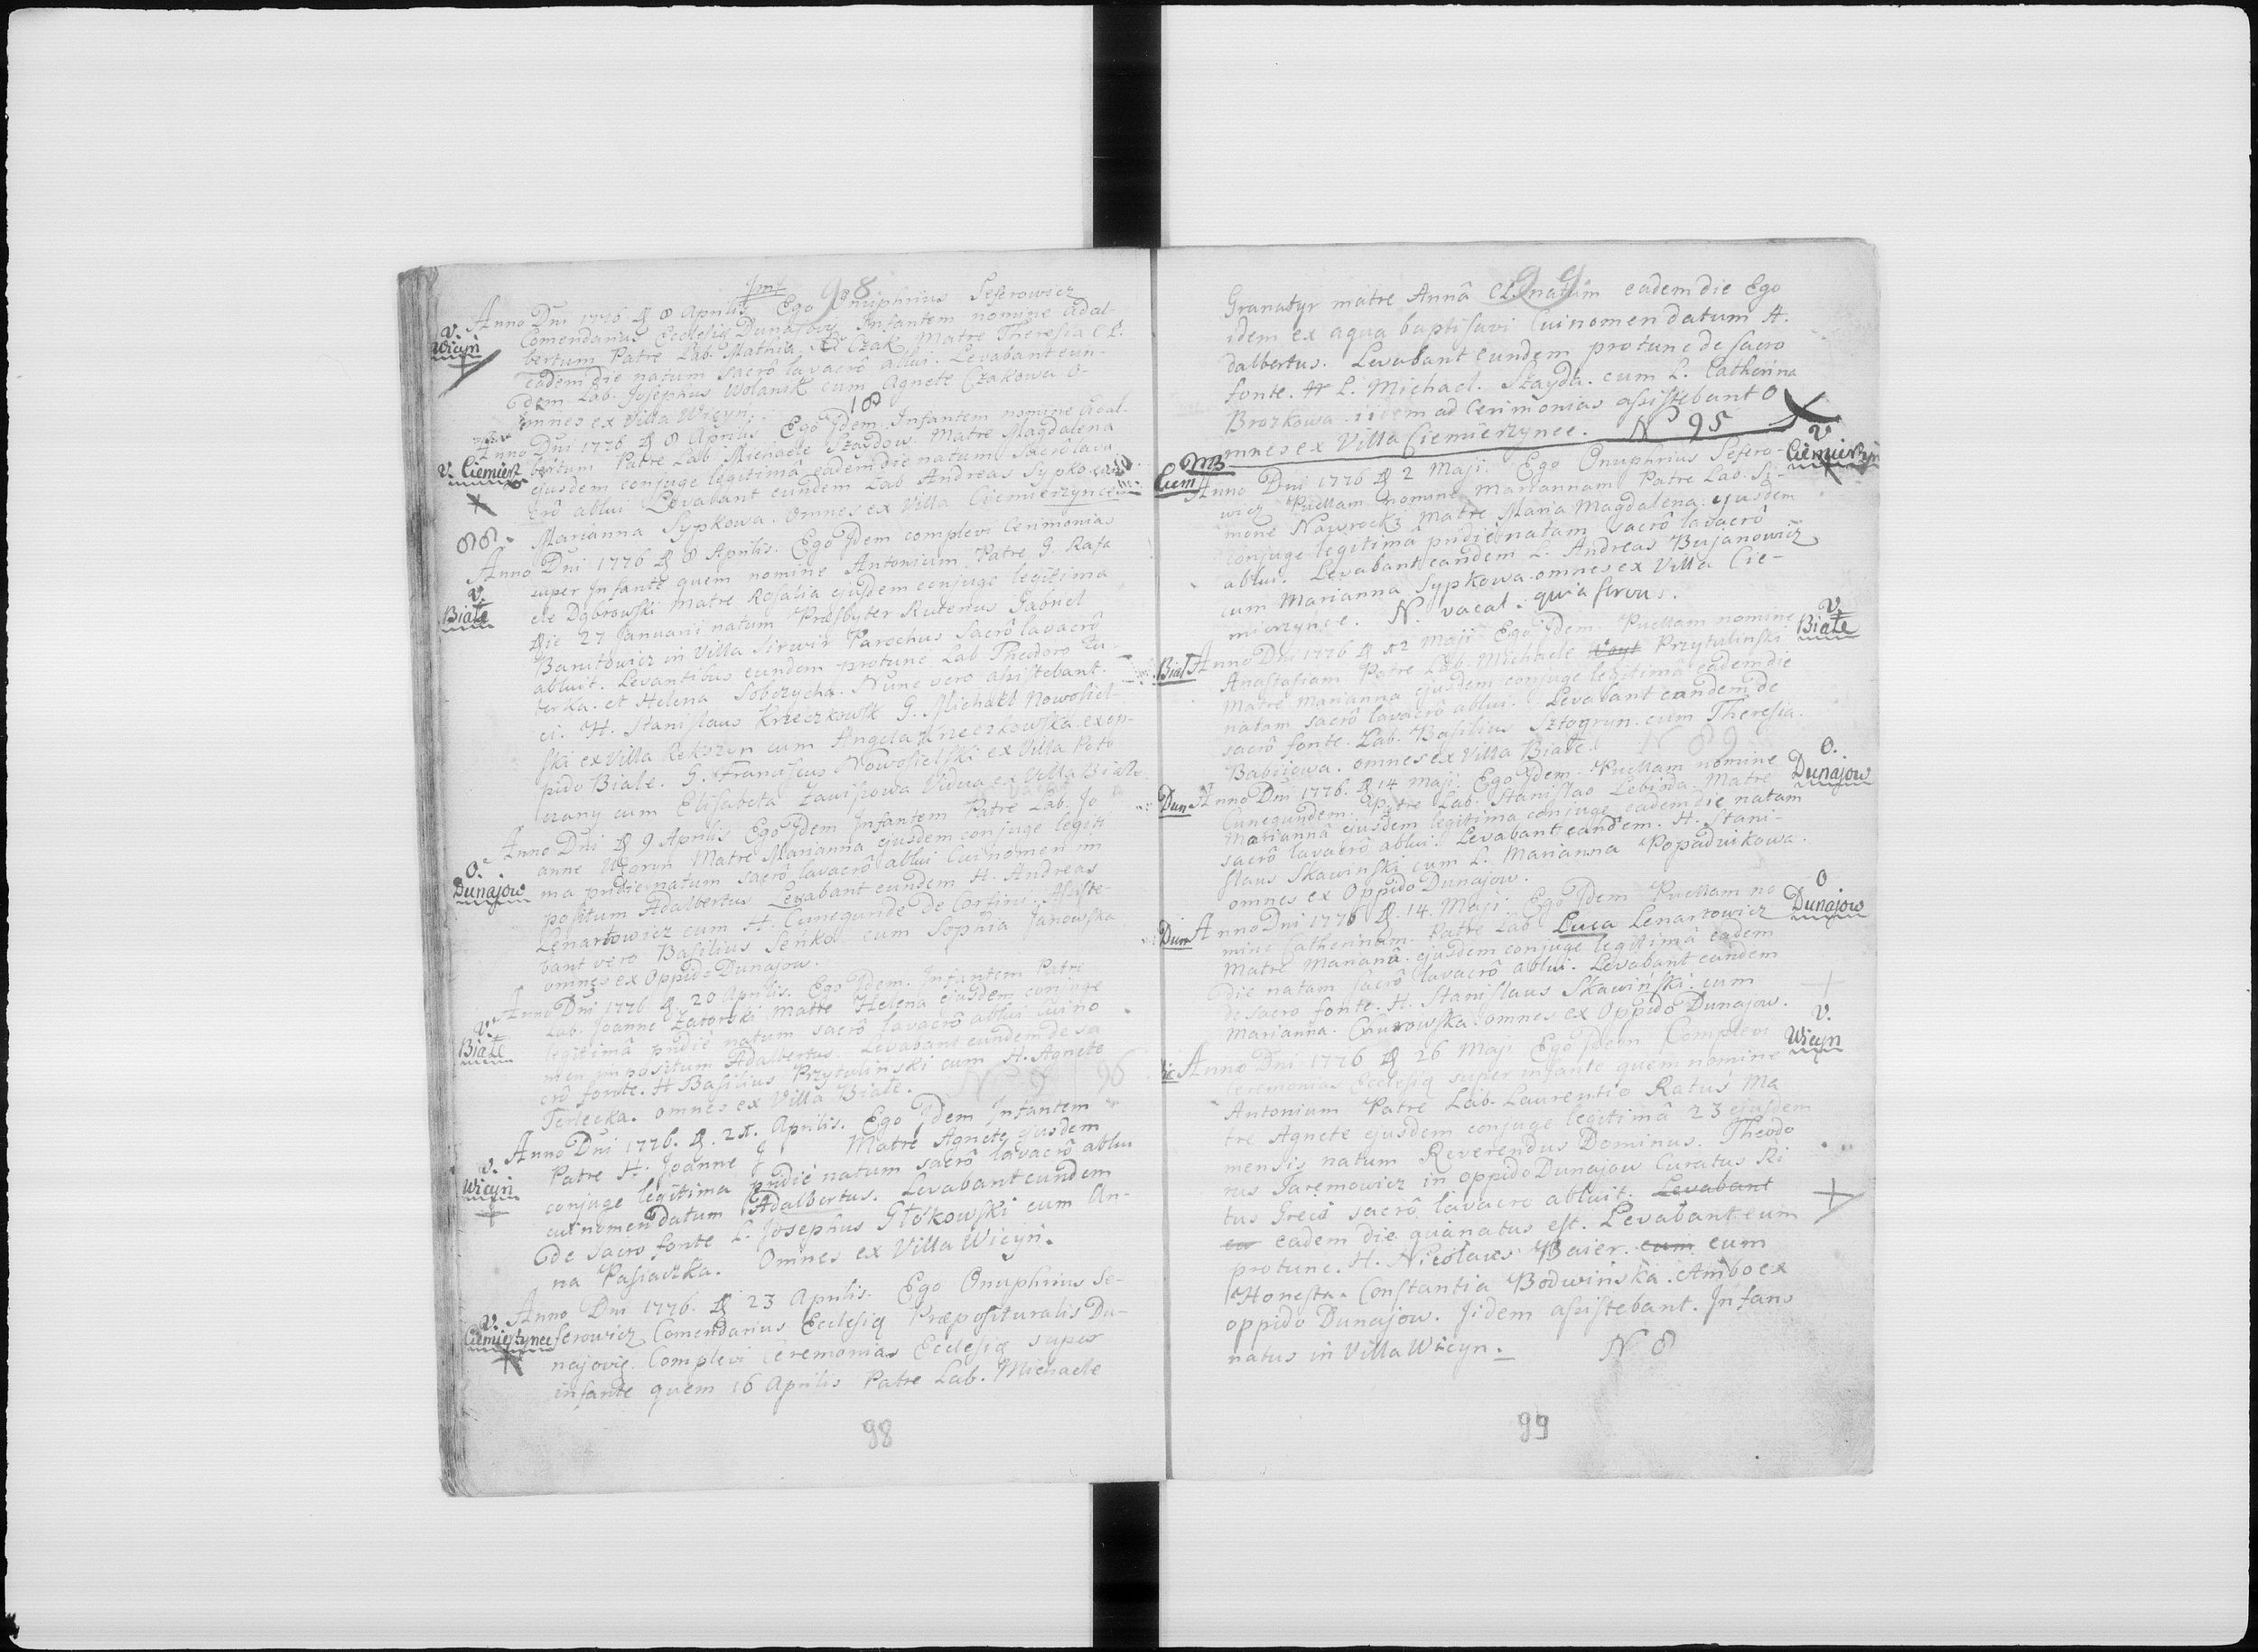 98
Anno Dni 1776 d 8 Aprilis Ego Onuphrius Seferowicz
V. Wicyń
Comendarius Ecclesiæ Dunajovi Infantem nomine Adal-
bertum Patre Lab. Mathia Czak Matre Theresia C L.
eadem die natum sacrô lavacrô ablui. Levabant eun-
dem Lab. Josephus Wolanik cum Agnete Czakowa o-
mnes ex Villa Wicyn.
18
Anno Dni 1776 d 8 Aprilis Ego Jdem Infantem nomine Adal-
V. Ciemierz
bertum Patre Lab. Michaele Szaydow. Matre Magdalena
ejusdem conjuge legitimâ eadem die natum sacrô lava
crô ablui Levabant eundem Lab Andreas Sypko
Marianna Sypkowa. omnes ex Villa Ciemierzynce
88.
Anno Dni 1776 d 8 Aprilis. Ego Jdem complevi Cerimonias
V. Białe
super Infante quem nomine Antonium Patre G. Rafa
ele Dąbrowski Matre Rosalia ejusdem conjuge legitima
die 27 Januarii natum Præsbyter Rutenus Gabriel
Barutowicz in Villa Parochus Sacrô lavacrô
abluit. Levantibus eundem protunc Lab Theodoro
terka. et Helena Sobczycha. Nunc vero assistebant.
ei. H. Stanislaus Krzeczkowsk G. Michael Nowosiel-
ski ex Villa cum Angela Krzeczkowska ex op-
pido Biale. G. Franciscus Nowosielski ex Villa Poto
czany cum Elisabeta Zawiszowa Vidua ex Villa Białe
Anno Dni d 9 Aprilis Ego Jdem Infantem Patre Lab. Jo
O. Dunajow
anne Matre Marianna ejusdem conjuge legiti
ma pridie natum sacrô lavacrô ablui Cui nomen im
positum Adalbertus Levabant eundem H. Andreas
Lenartowicz cum H. Cunegunde De Corfini. Assiste-
bant vero Basilius Seńko cum Sophia Janowska
omnes ex Oppido Dunajow.
Anno Dni 1776 d 20 Aprilis. Ego Jdem. Infantem Patre
V. Białe
Lab. Joanne Zatorski Matre Helena ejusdem conjuge
legitimâ pridie natum sacrô lavacrô ablui cui no
men impositum Adalbertus. Levabant eundem de sa
crô fonte. H Basilius Przytulinski cum H. Agnete
Terlecka. omnes ex Villa Białe. N 96
Anno Dni 1776. d. 21. Aprilis. Ego Jdem Infantem
V. Wicyń
Patre H. Joanne Matre Agnete ejusdem
conjuge legitima pridie natum sacrô lavacrô ablui
cui nomen datum Adalbertus. Levabant eundem
de sacro fonte L. Josephus Głokowski cum An-
na Pasiaczka. Omnes ex Villa Wicyń.
Anno Dni 1776. d 23 Aprilis. Ego Onuphrius Se-
V. Ciemierzynce
ferowicz Comendarius Ecclesiæ Præposituralis Du-
najoviæ. Complevi Ceremonias Ecclesiæ super
infante quem 16 Aprilis Patre Lab. Michaele
98
99
Granatyr matre Annâ CL. natum eadem die Ego
idem ex aqua baptisavi Cui nomen datum A.
dalbertus. Levabant eundem protunc de sacro
fonte. L. Michael. Szayda. cum L. Catherina
Brozkowa. iidem ad Cerimonias assistebant O
mnes ex Villa Ciemierzynce. N 95
NB
Ciem
V. Ciemierzyn
Anno Dni 1776 d 2 Maji. Ego Onuphrius Sefero-
wicz Puellam nomine Mariannam Patre Lab. Si-
mone Nawrocki Matre Maria Magdalena. ejusdem
conjuge legitimâ pridie natam sacrô lavacrô
ablui. Levabant eandem L. Andreas Bujanowicz
cum Marianna Sypkowa. omnes ex Villa Cie-
mierzynce. N. vacat. quia servus.
Biał
V. Białe
Anno Dni 1776 d 12 Maji Ego Jdem. Puellam nomine
Anastasiam Patre Lab. Michaele Przytulinski
Matre Marianna ejusdem conjuge legitimâ eadem die
natam sacrô lavacrô ablui. Levabant eandem de
sacrô fonte. Lab. Basilius Sztogryn. cum Theresia.
Babiiowa. omnes ex Villa Białe. N 89
Dun
O. Dunajow
Anno Dni 1776. d 14 Maji. Ego Jdem. Puellam nomine
Cunegundem. Patre Lab. Stanislao Lebioda Matre
Mariannâ ejusdem legitima conjuge eadem die natam
sacrô lavacrô ablui. Levabant eandem. H. Stani-
slaus Skawinski cum L. Marianna Popadiukowa.
omnes ex Oppido Dunajow.
Dun
O Dunajow
Anno Dni 1776 d. 14. Maji. Ego Jdem Puellam no
mine Catherinam. Patre Lab. Luca Lenartowicz
Matre Marianâ. ejusdem conjuge legitimâ eadem
die natam sacrô lavacrô ablui. Levabant eandem
de sacro fonte. H. Stanislaus Skawiński. cum
Marianna. Gurowska. omnes ex Oppido Dunajow.
V. Wicyn
Anno Dni 1776 d 26 Maji Ego Jdem Complevi
Ceremonias Ecclesiæ super infante quem nomine
Antonium Patre Lab. Laurentio Ratuś Ma
tre Agnete ejusdem conjuge legitimâ 23 ejusdem
mensis natum Reverendus Dominus. Theodo
rus Jaremowicz in oppido Dunajow Curatus Ri
tus Greci sacrô lavacro abluit. Levabant
eadem die qua natus est. Levabant eum
protunc. H. Nicolaus Baier. cum cum
Honesta. Constantia Bodwińska. Ambo ex
oppido Dunajow. Jidem assistebant. Infans
natus in Villa Wicyn. N. 8
99